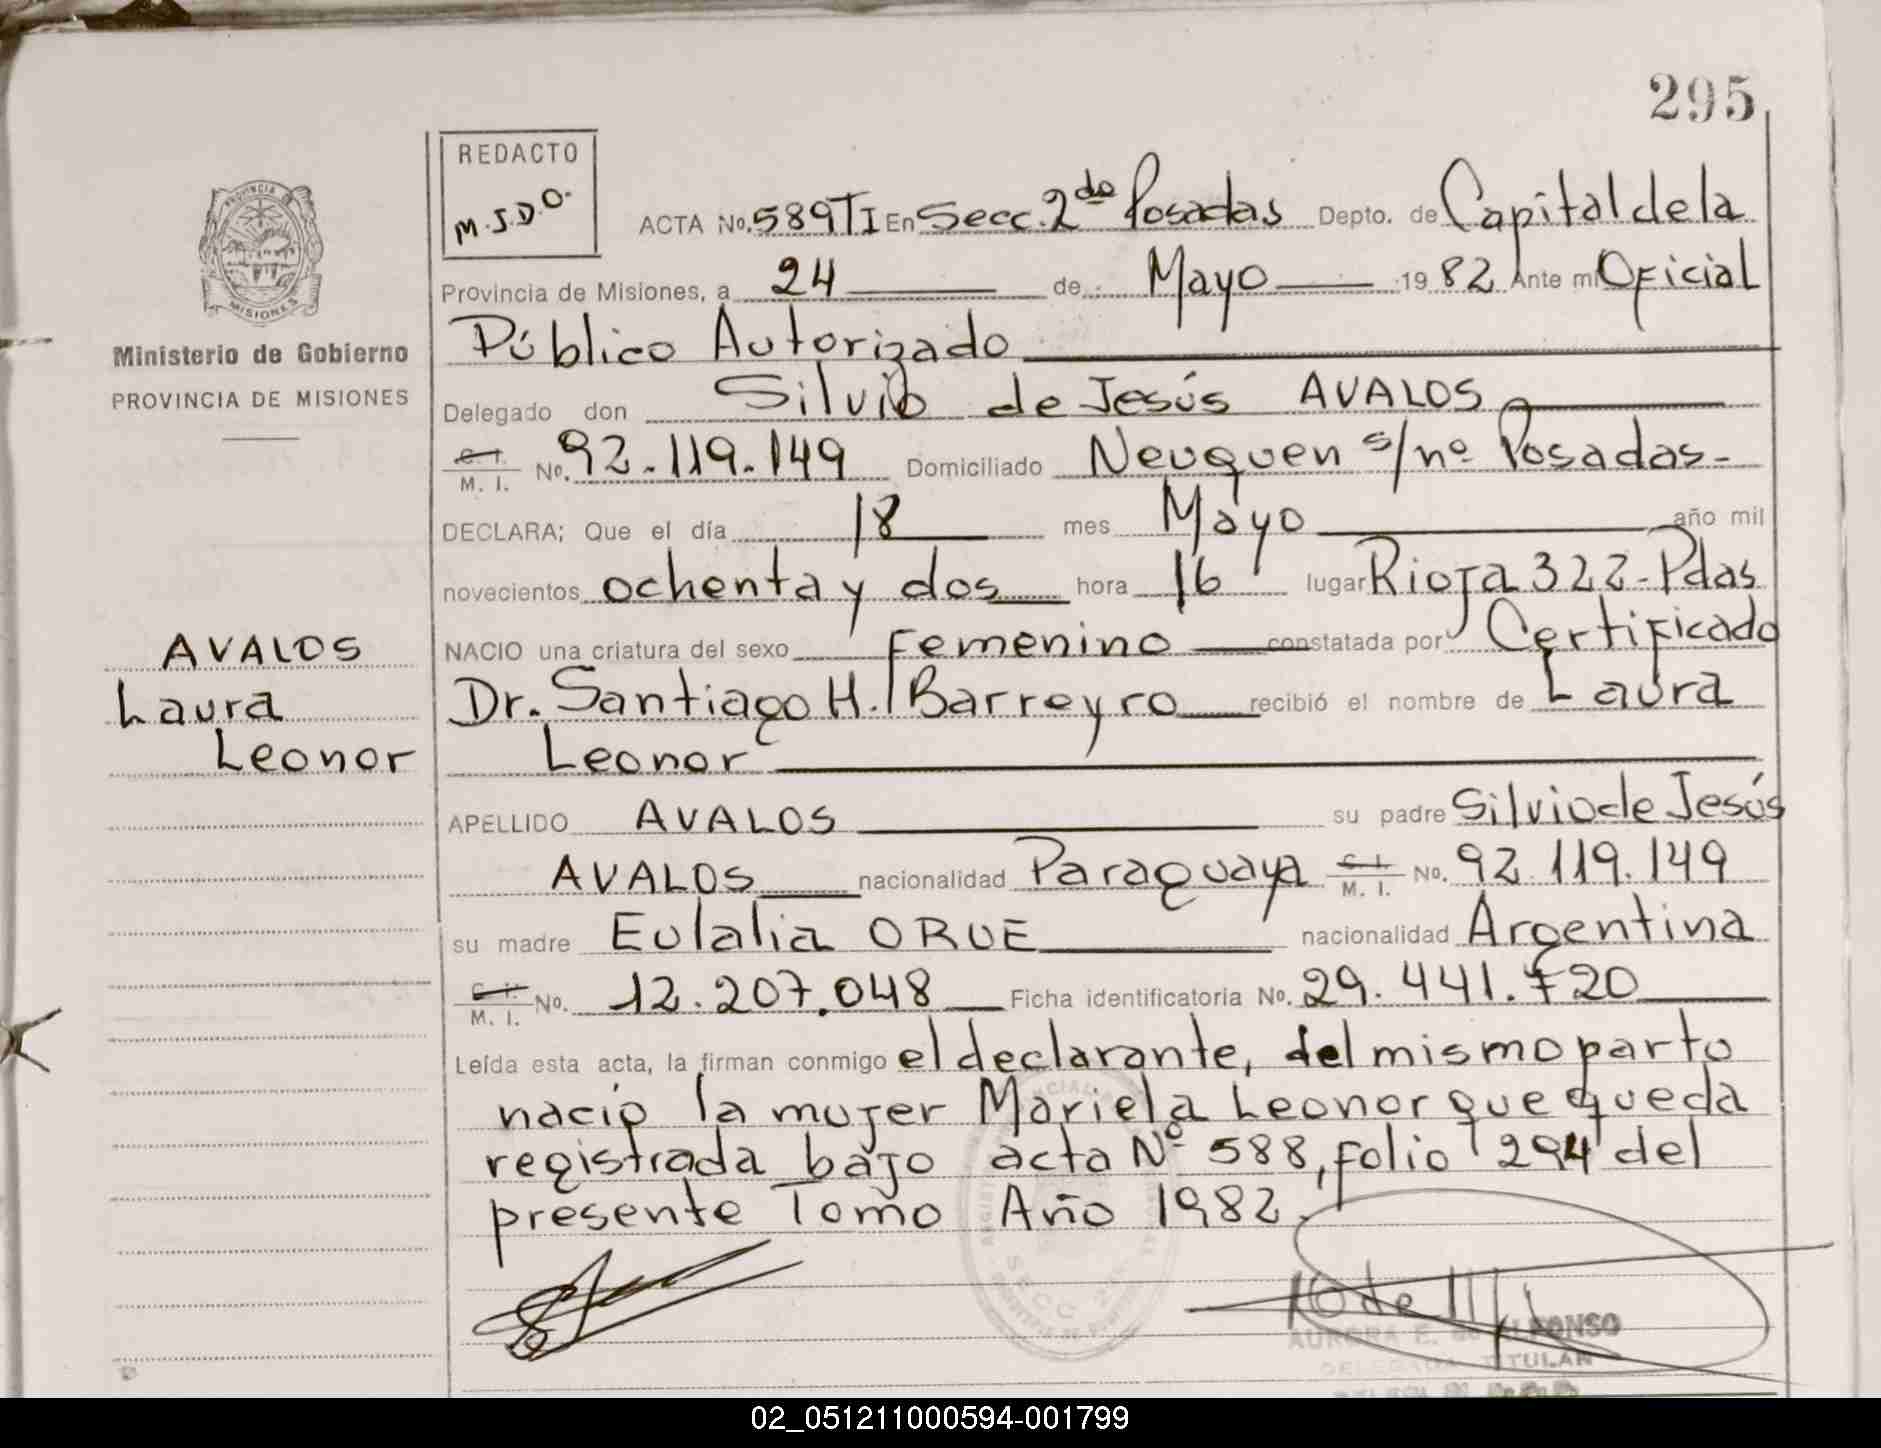 295
REDACTO
M.J.D.O.
PROVINCIA
MISIONES
Ministerio de Gobierno
PROVINCIA DE MISIONES
AVALOS
Laura
Leonor
ACTA No. 589TI En Secc. 2da Posadas Depto. de Capital de la
Provincia de Misiones, a 24 de Mayo 1982 Ante mi Oficial
Público Autorizado
Delegado don Silvio de Jesús AVALOS
C. I. M. I. No. 92.119.149 Domiciliado Neuquen s/nº Posadas-
DECLARA; Que el día 18 mes Mayo año mil
novecientos ochenta y dos hora 16 lugar Rioja 322-Pdas
NACIO una criatura del sexo Femenino constatada por Certificado
Dr. Santiago H. Barreyro recibió el nombre de Laura
Leonor
APELLIDO AVALOS su padre Silvio de Jesús
AVALOS nacionalidad Paraguaya C. I. M. I. No. 92.119.149
su madre Eulalia ORUE nacionalidad Argentina
C. I. M. I. No. 12.207.048 Ficha identificatoria No. 29.441.720
Leída esta acta, la firman conmigo el declarante, del mismo parto
nació la mujer Mariela Leonor que queda
registrada bajo acta Nº 588, folio 294 del
presente Tomo Año 1982.
SECC
AURORA E. de ALFONSO
DELEGADA TITULAR
02_051211000594-001799